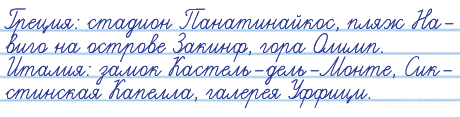 Греция: стадион Панатинайкос, пляж На-
виго на острове Закинф, гора Олимп.
Италия: замок Кастель-дель-Монте, Сик-
стинская Капелла, галерея Уффици.